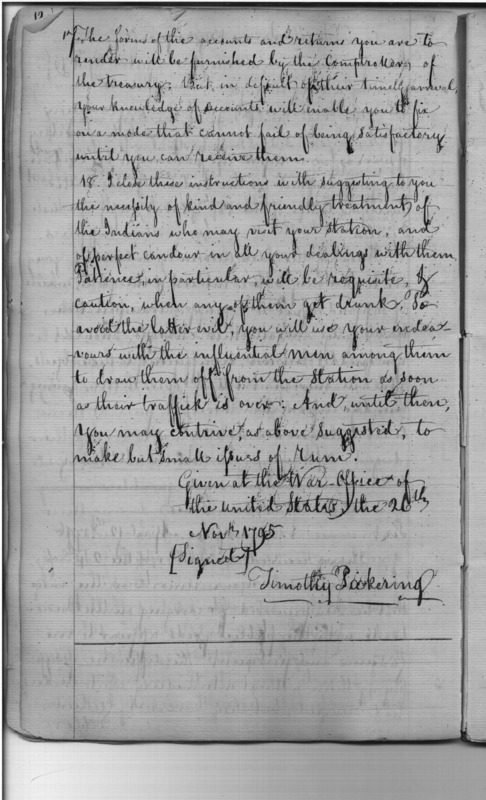 12
17. The forms of the accounts and returns you are to
render will be furnished by the Comptroller of
the treasury; But, in default of their timely arrival,
your knowledge of accounts will enable you to fix
on a mode that cannot fail of being satisfactory
until you can receive them.
18. I close these instructions with suggesting to you
the necessity of kind and friendly treatment of
the Indians who may visit your Station, and
of perfect candour in all your dealings with them.
Patience, in particular, will be requisite, &
caution, when any of them get drunk. To
avoid the latter evil, you will use your endea-
vours with the influential men among them
to draw them off from the Station as soon
as their traffick is over: And, until then,
you may contrive, as above suggested, to
make but small issues of rum.
Given at the War-Office of
the United States, the 26th
Novr. 1795
[Signed]
Timothy Pickering